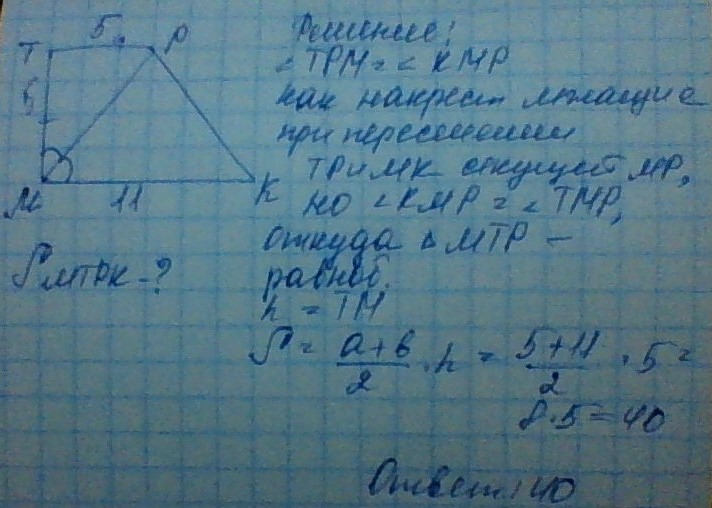 5
T P
5
M 11 K
S MTPK - ?
Решение:
∠TPM = ∠KMP
как накрест лежащие
при пересечении
TP и MK секущей MP,
но ∠KMP = ∠TMP,
откуда △MTP –
равноб.
h = TM
S = a+b/2 · h = 5+11/2 · 5 =
8·5=40
Ответ: 40